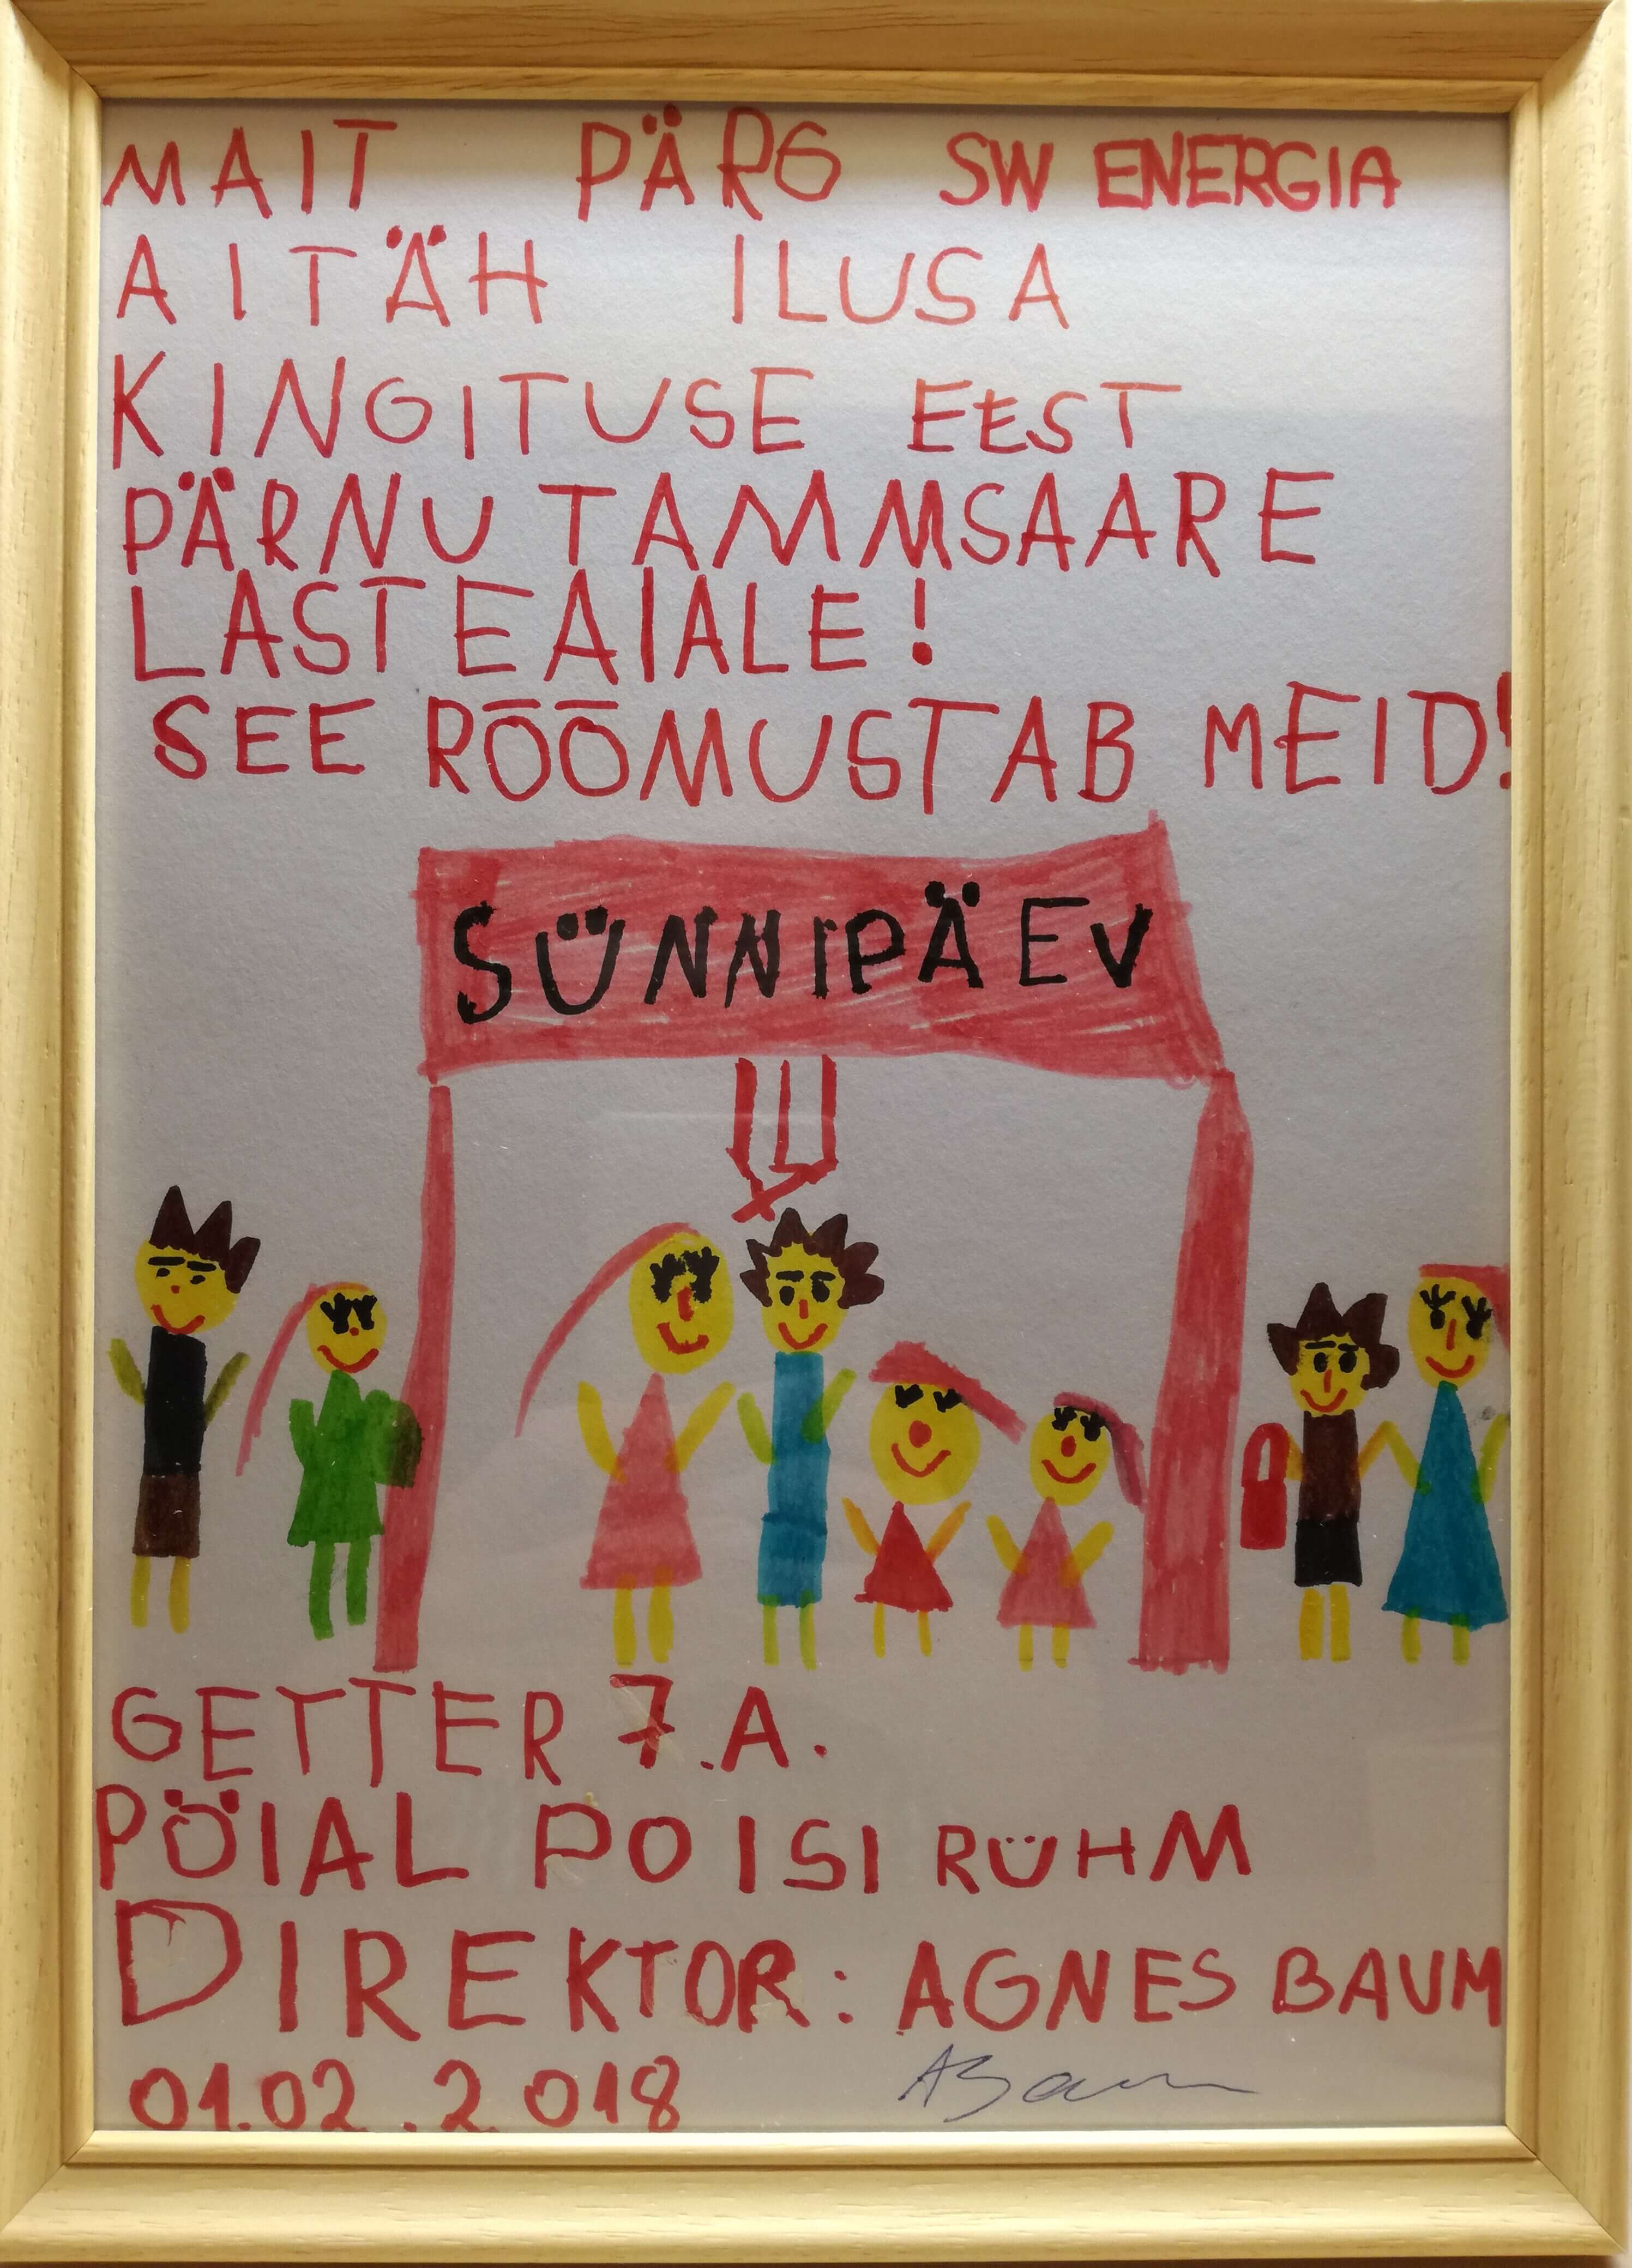 MAIT PÄRG SW ENERGIA
AITÄH ILUSA
KINGITUSE EEST
PÄRNU TAMMSAARE
LASTEAIALE!
SEE RÕÕMUSTAB MEID!
SÜNNIPÄEV
GETTER 7.A.
PÖIAL POISI RÜHM
DIREKTOR: AGNES BAUM
01.02.2018